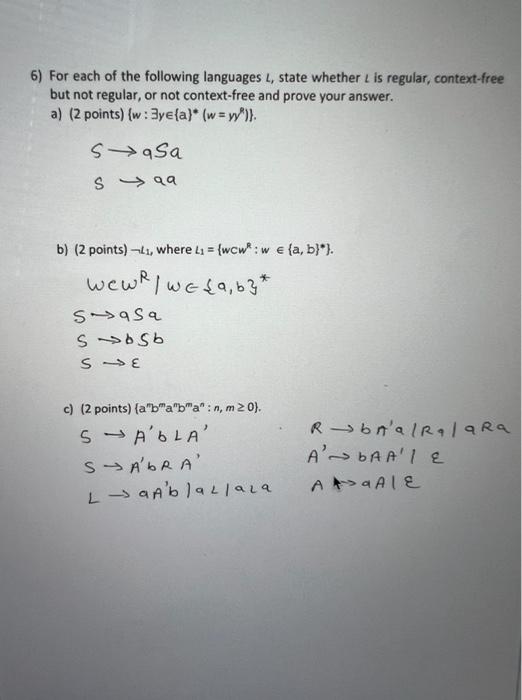 6) For each of the following languages L, state whether L is regular, context-free
but not regular, or not context-free and prove your answer.
a) (2 points) {w : ∃y∈{a}* (w = yyᴿ)}.
S → aSa
S → aa
b) (2 points) ¬L₁, where L₁ = {wcwᴿ : w ∈ {a, b}*}.
wcwᴿ | w ∈ {a,b}*
S → aSa
S → bSb
S → ε
c) (2 points) {aⁿbᵐaⁿbᵐaⁿ : n, m ≥ 0}.
S → A'bLA'
S → A'bRA'
L → aA'b | aL | aLa
R → bA'a | Ra | aRa
A' → bAA' | ε
A → aA | ε